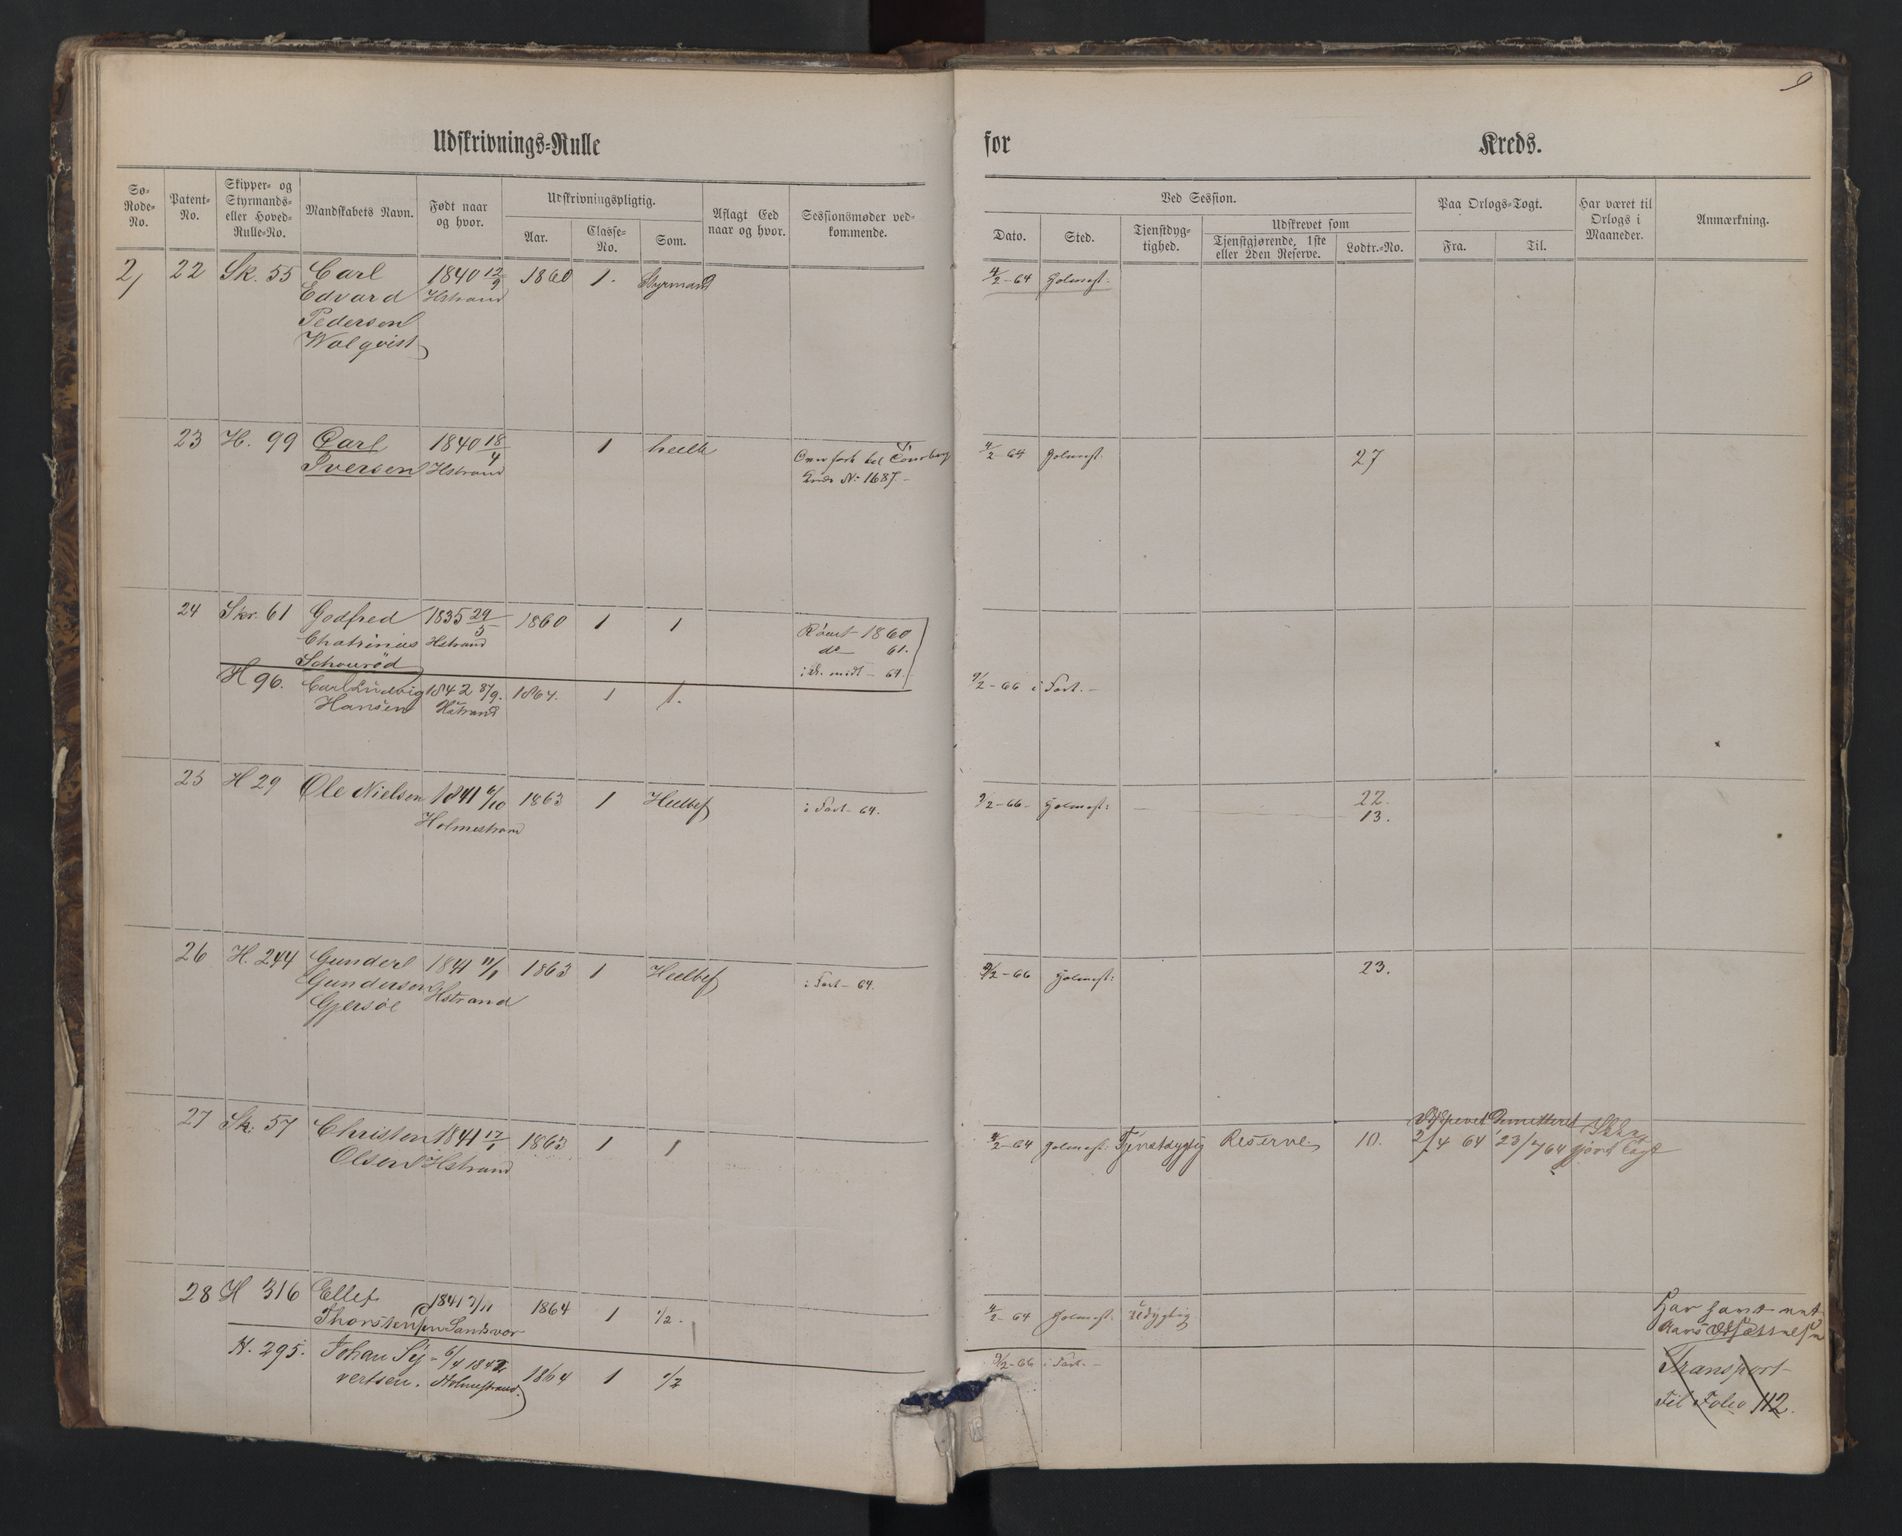 9
Udskrivnings-Rulle for Kreds.
Sø-Rode-No. Patent-No. Skipper- og Styrmands- eller Hoved-Rulle-No. Mandskabets Navn. Født naar og hvor. Udskrivningspligtig. Aar. Classe-No. Som. Aflagt Eed naar og hvor. Sessionsmøder vedkommende.
Ved Session. Dato. Sted. Tjenstdygtighed. Udskrevet som Tjenstgjørende, 1ste eller 2den Reserve. Lodtr.-No. Paa Orlogs-Togt. Fra. Til. Har været til Orlogs i Maaneder. Anmærkning.
2, 22 Sk. 55 Carl 1840 12/9 1860 1. Styrmand 4/2-64 Holmest:
Edvard Hstrand
Pedersen
Wolqvist
23 H. 99 Carl 1840 18/4 1 heelt 4/2-64 Holmest. 27
Iversen Hstrand
No 1687-
24 Skr. 61 Godfred 1835 29/5 1860 1 1 1860
Chatrinus Hstrand do 61.
Schourød i 64.
H 96. Carl Ludvig 1842 1864. 1 1. 9/2-66 i Fart.-
Hansen Hstrand
25 H 29 Ole Nielsen 1841 6/10 1863 1 Heelbef i Fart-64. 9/2-66- Holmest: 22.
Holmestrand 13.
26 H. 244 Gunder 1841 11/1 1863 1 Heelbef i Fart-64. 9/2-66 Holmest: 23.
Gundersen Hstrand
Gjersøe
27 Sk. 57 Christen 1841 17/1 1863 1 1 4/2-64 Holmest. Tjenstdygtig Reserve 10. 2/4 64 23/7 64
Olsen Hstrand Dimitteret
28 H 316 Ellef 1841 3/11 1864 1 1/2. 4/2-64 Holmest. udygtig Har havt
Thorstensen Sandsvær Aars Udsættelse
H. 295. Johan Sy- 6/4 1842 1864 1 1/2 9/2-66 i Fart.- Transport
vertsen. Holmestrand. Til Folio 112.